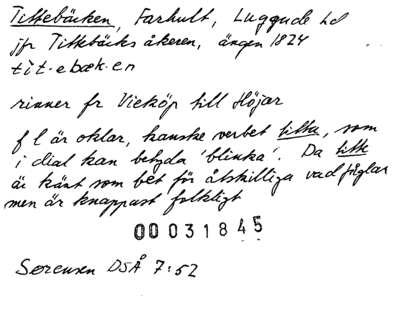 Tittebäcken, Farhult, Luggude hd
jfr Tittebäcks åkeren, ängen 1824
tìt·ebæk·en
rinner fr Vieköp till Höjar
f l är oklar, kanske verbet titta, som
i dial kan betyda 'blinka'. Da titt
är känt som bet för åtskilliga vadfåglar
men är knappast folkligt
00031845
Sørensen DSÅ 7:52